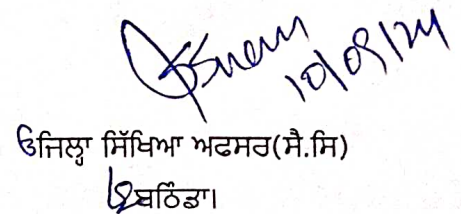 10/09/24
ਜਿਲ੍ਹਾ ਸਿੱਖਿਆ ਅਫਸਰ(ਸੈ.ਸਿ)
ਬਠਿੰਡਾ।